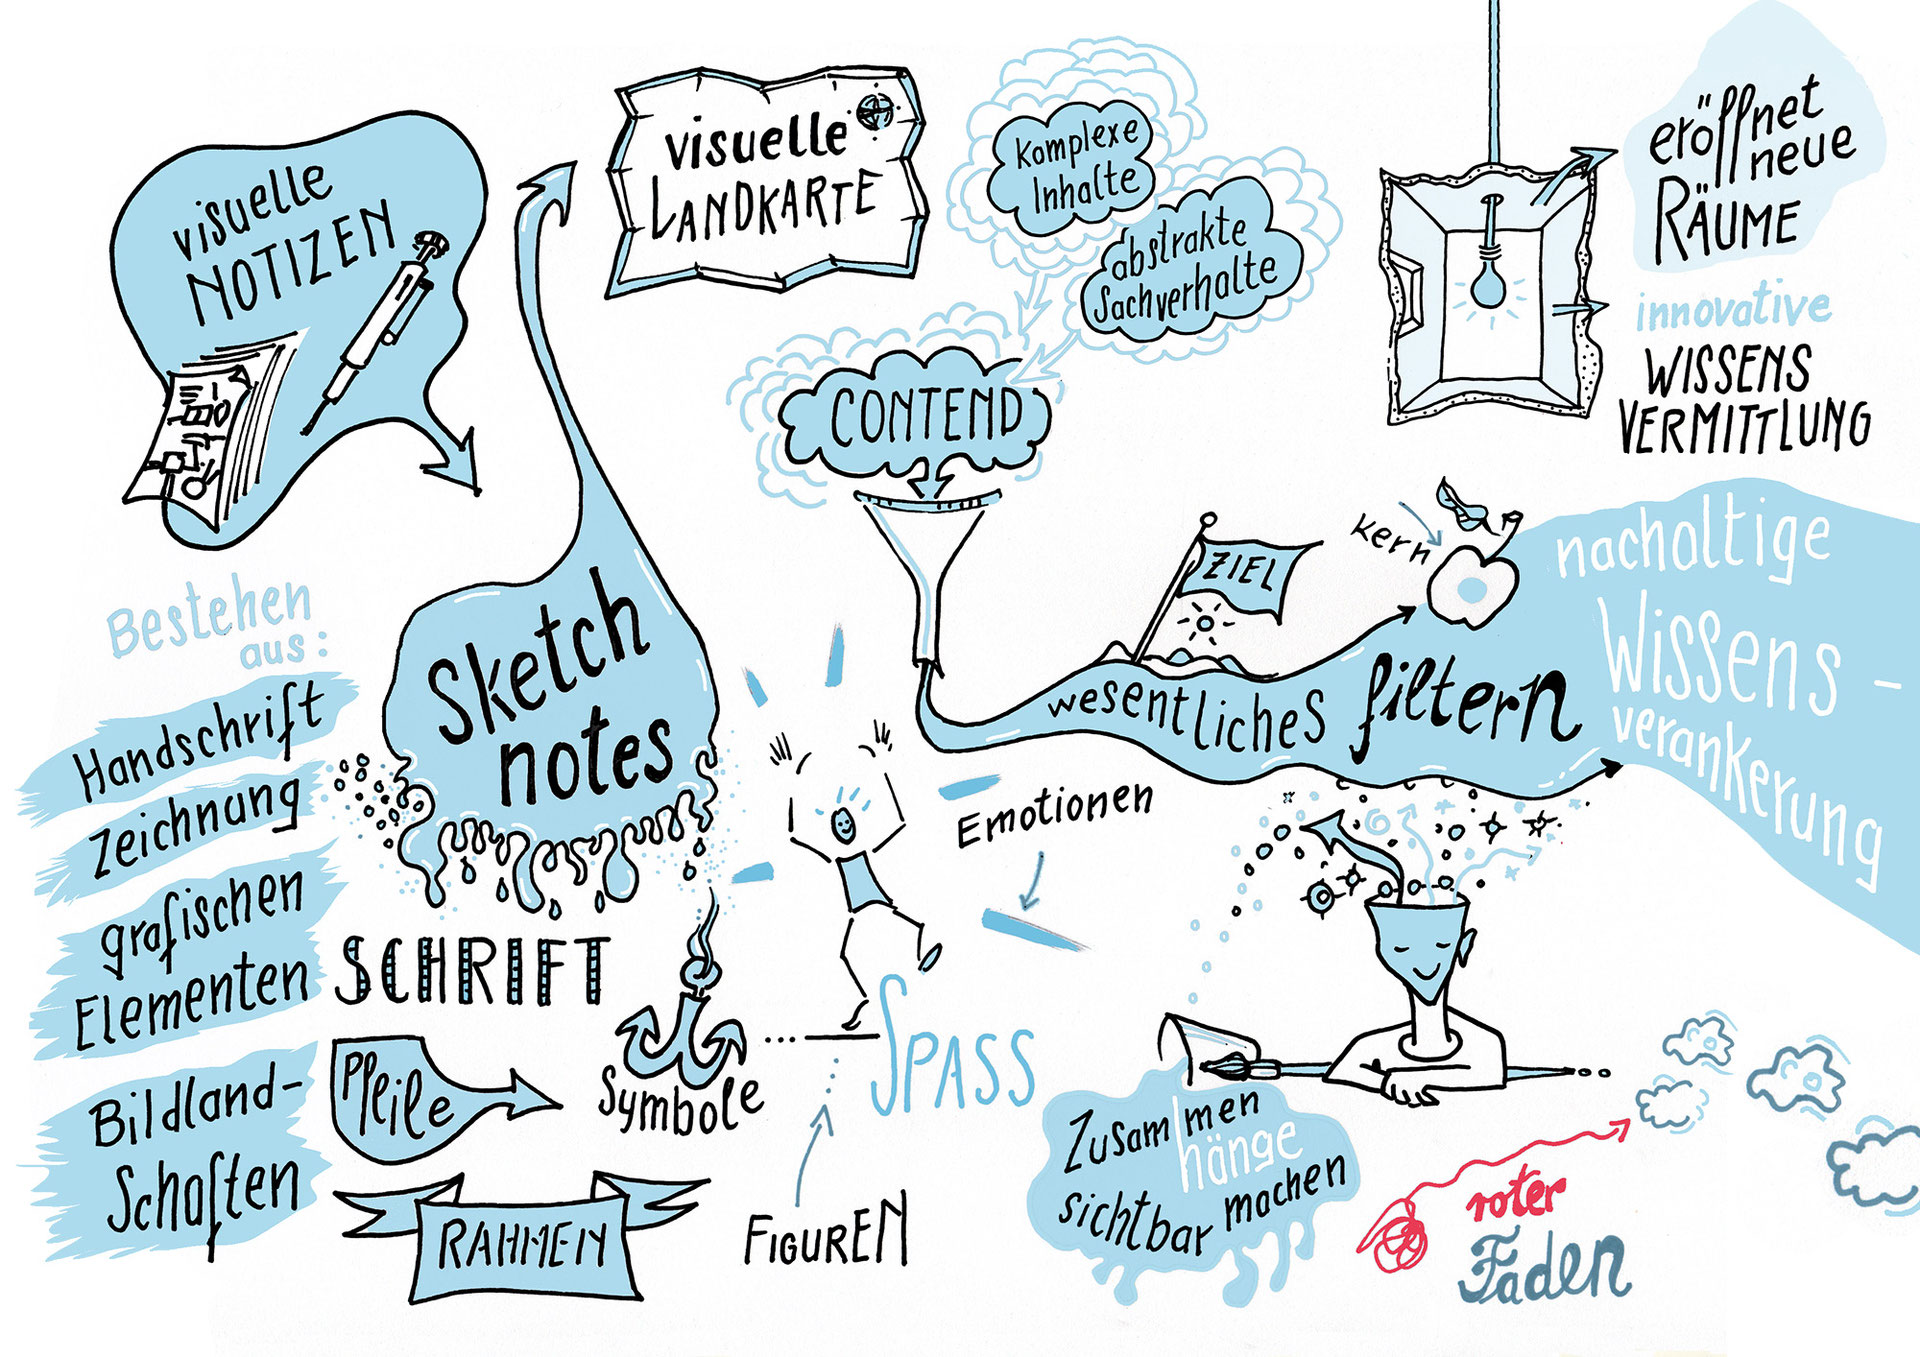 visuelle
NOTIZEN
visuelle
LANDKARTE
komplexe
Inhalte
abstrakte
Sachverhalte
CONTEND
eröffnet
neue
RÄUME
innovative
WISSENS
VERMITTLUNG
Bestehen
aus:
Handschrift
zeichnung
grafischen
Elementen
Bildland-
Schaften
Sketch
notes
SCHRIFT
Pfeile
Symbole
RAHMEN
FIGUREN
SPASS
Emotionen
ZIEL
kern
wesentliches filtern
nachaltige
Wissens-
verankerung
Zusammen
hänge
sichtbar machen
roter
Faden